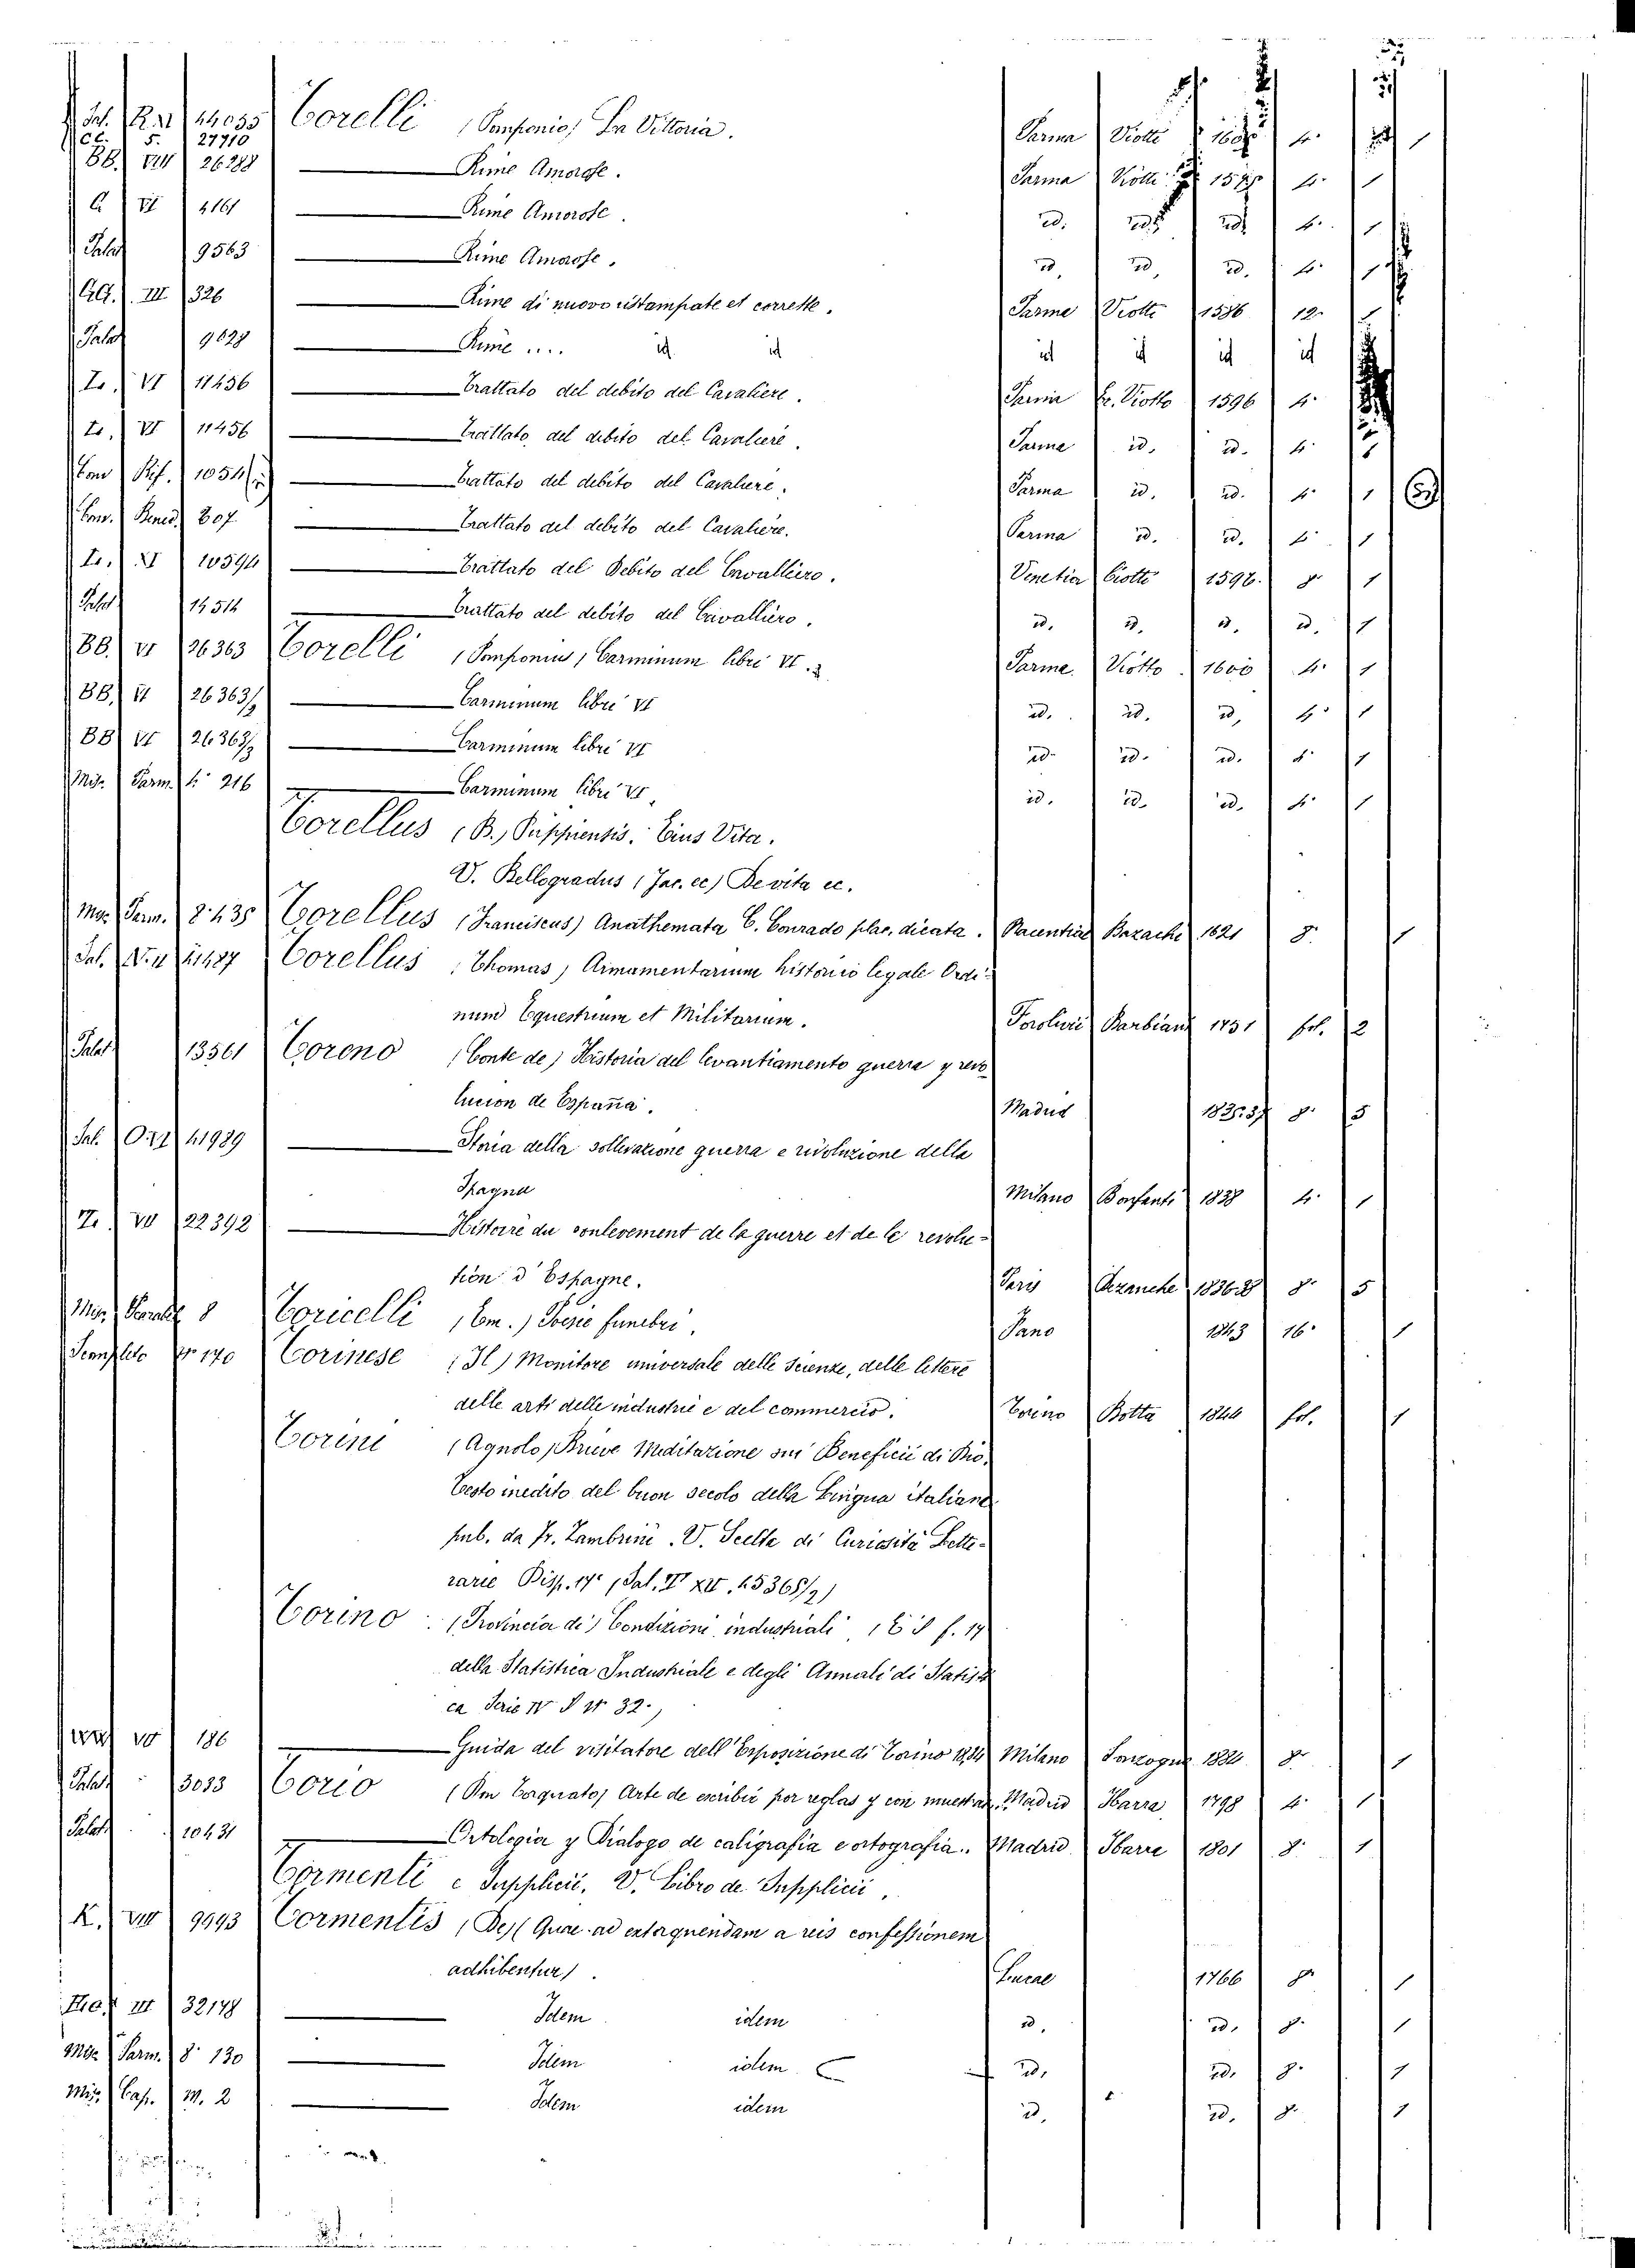 Torelli (Pomponio) La Vittoria. Parma Viotti 4.° 1
CC. 5. 27710
BB. VIII 26288 Rime Amorose. Parma Viotti 4.° 1
C VI 4161 Rime Amorose. id. id. id. 4.° 1
Palat. 9563 Rime Amorose. id. id. id. 4.° 1
GG. III 326 Rime di nuovo ristampate et corrette. Parma Viotti 1586 12.°
Palat 9628 Rime .... id id id id id id
Te. VI 11456 Trattato del debito del Cavaliere. Parma Er. Viotto 1596 4.°
Te. VI 11456 Trattato del debito del Cavaliere. Parma id. id. 4.° 1
Con Rif. 1054 Trattato del debito del Cavaliere. Parma id. id. 4.° 1
Con. Bened. 807 Trattato del debito del Cavaliere. Parma id. id. 4.° 1
Te. XI 10594 Trattato del Debito del Cavalliero. Venetia Ciotti 1596. 8.° 1
Palat 14514 Trattato del debito del Cavalliero. id. id. id. id. 1
BB. VI 26363 Torelli (Pomponius) Carminum libri VI. Parma Viotto 1600 4.° 1
BB. VI 26363/ Carminum libri VI id. id. id. 4.° 1
BB VI 26363/ Carminum libri VI id. id. id. 4.° 1
Mis. Parm. 4.° 216 Carminum libri VI. id. id. id. 4.° 1
Torellus (B.) Puppiensis. Eius Vita.
V. Bellogradus (Jac. ec) De vita ec.
Mis. Parm. 8.° 435 Torellus (Franciscus) Anathemata C. Conrado plac. dicata. Placentiae Bazachi 1621 8.° 1
Sal. 41487 Torellus (Thomas) Armamentarium historico legale Ordi-
num Equestrium et Militarium. Forolivii Barbiani 1751 fol. 2
Palat 13561 Toreno (Conte de) Historia del levantiamento guerra y revo
lucion de España. Madrid 1835.37 8.° 5
Sal. O.VI 41989 Storia della sollevazione guerra e rivoluzione della
Spagna Milano Bonfanti 1838 4.° 1
Te. VII 22392 Histoire du soulevement de la guerre et de la revolu-
tion d'Espagne. Paris 1836.38 8.° 5
8 Toricelli (Em.) Poesie funebri. Fano 1843 16.° 1
170 Torinese (Il) Monitore universale delle scienze, delle lettere
delle arti delle industrie e del commercio. Torino Botta 1844 fol. 1
Torini (Agnolo) Brieve Meditazione sui Beneficii di Dio.
Testo inedito del buon secolo della Lingua italiana
pub. da Fr. Zambrini. V. Scelta di Curiosità Lette-
rarie Disp. 17.° (Sal. V XII. 45365/2)
Torino (Provincia di) Condizioni industriali f. 17
della Statistica Industriale e degli Annali di Statisti
ca Serie IV 32.)
VII 186 Guida del visitatore dell'Esposizione di Torino 1884 Milano Sonzogno 1884 8.° 1
Palat 3033 Torio (Don Torquato) Arte de escribir por reglas y con muestras. Madrid Ibarra 1798 4.° 1
Palat. 10431 Ortologia y Dialogo de caligrafia e ortografia. Madrid Ibarra 1801 8.° 1
Tormenti e Supplicii. V. Libro de Supplicii.
K. VIII 9993 Tormentis (De) (Quae ad extorquendam a reis confessionem
adhibentur). Lucae 1766 8.° 1
III 32178 Idem idem id. id. 8.° 1
Mis. Parm. 8.° 130 Idem idem id. id. 8.° 1
Mis. Cap. M. 2 Idem idem id. id. 8.° 1